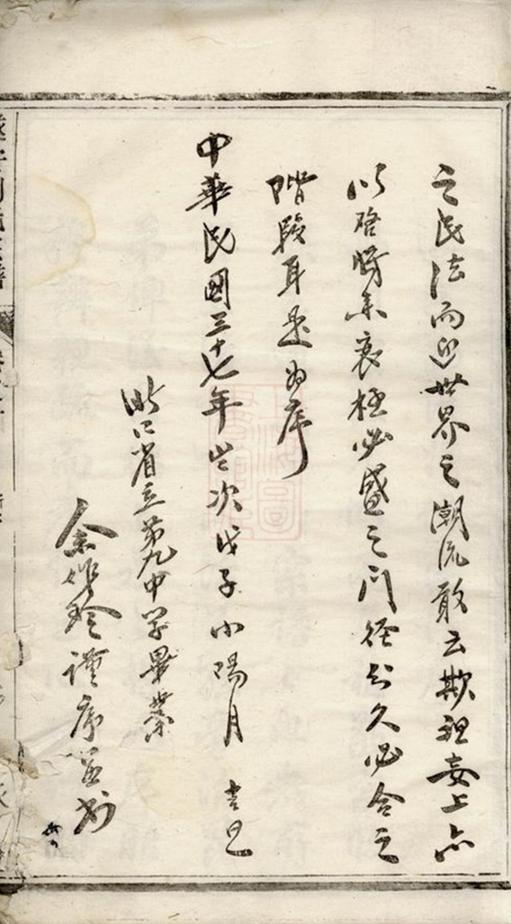 之民法而迎世界之潮流敢云欺祖妄上亦
以啓將來衰極必盛之門徑分久必合之
階段耳是爲序
中華民國三十七年歲次戊子小陽月 吉旦
浙江省立第九中学畢業
余作 謹序並書